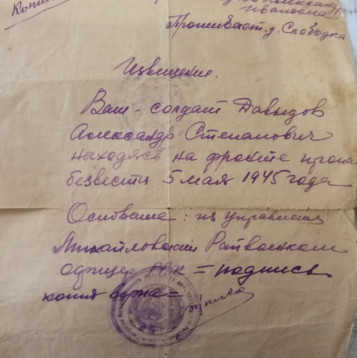 Копия
Ивановна
Проживает д. Слободка
Извещение.
Ваш - солдат Давыдов
Александр Степанович
находясь на фронте пропа
безвести 5 мая 1945 года
Основание: из управления
Михайловский Райвоенком
подпись
копия верна =